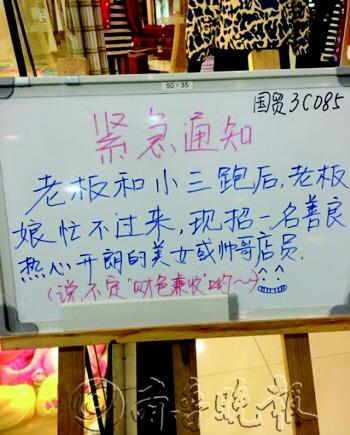 50×35
国贸3C085
紧急通知
老板和小三跑后,老板
娘忙不过来,现招一名善良
热心开朗的美女或帅哥店员.
(说不定"财色兼收"哟~~)
齐鲁晚报